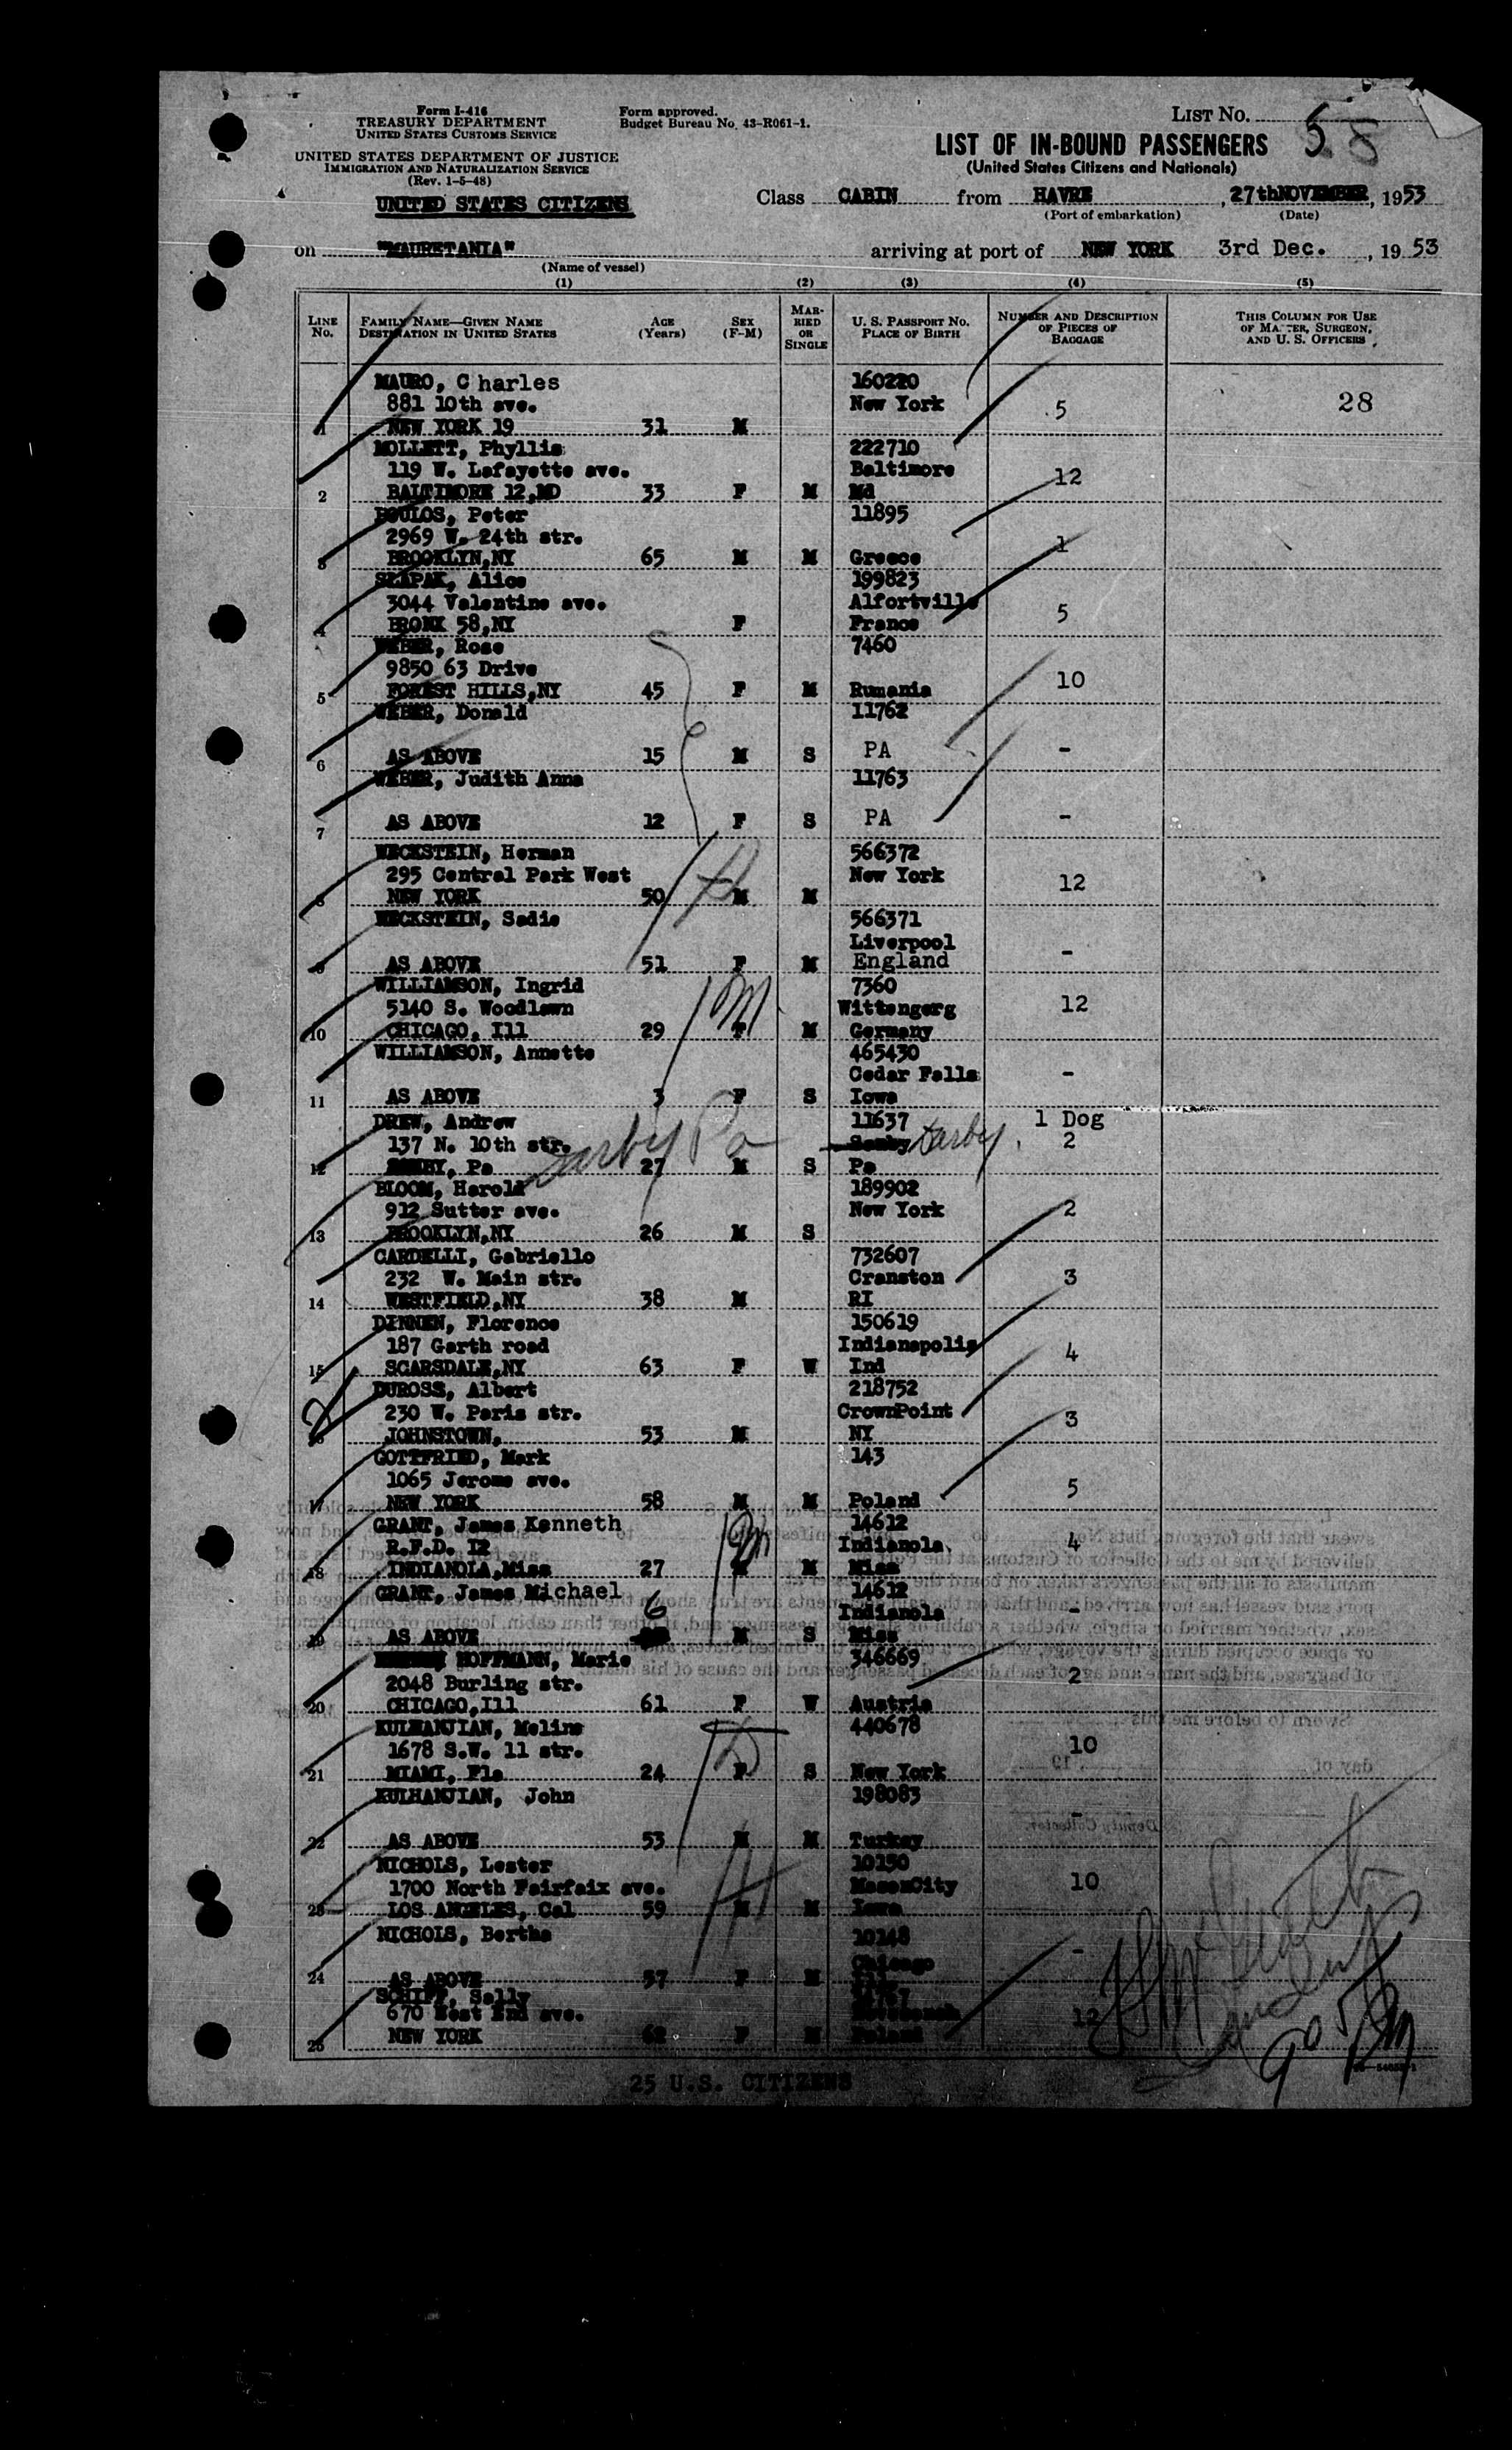 Form I-416
TREASURY DEPARTMENT
UNITED STATES CUSTOMS SERVICE
Form approved.
Budget Bureau No. 43-R061-1.
LIST NO. 5 8
UNITED STATES DEPARTMENT OF JUSTICE
IMMIGRATION AND NATURALIZATION SERVICE
(Rev. 1-5-48)
LIST OF IN-BOUND PASSENGERS
(United States Citizens and Nationals)
UNITED STATES CITIZENS
Class CABIN from HAVRE, 27thNOVEMBER, 1953
(Port of embarkation) (Date)
on "MAURETANIA" arriving at port of NEW YORK 3rd Dec., 1953
(Name of vessel)
(1) (2) (3) (4) (5)
LINE No. FAMILY NAME—GIVEN NAME DESTINATION IN UNITED STATES AGE (Years) SEX (F-M) MARRIED OR SINGLE U. S. PASSPORT NO. PLACE OF BIRTH NUMBER AND DESCRIPTION OF PIECES OF BAGGAGE THIS COLUMN FOR USE OF MASTER, SURGEON, AND U. S. OFFICERS
MAURO, Charles 160220
881 10th ave. New York 5 28
1 NEW YORK 19 31 M
MOLLETT, Phyllis 222710
119 W. Lafayette ave. Baltimore 12
2 BALTIMORE 12,MD 33 F M Md
POULOS, Peter 11895
2969 W. 24th str. 1
3 BROOKLYN,NY 65 M M Greece
SZAPAK, Alice 199823
3044 Valentine ave. Alfortville 5
4 BRONX 58,NY F France
WEBER, Rose 7460
9850 63 Drive 10
5 FOREST HILLS,NY 45 F M Rumania
WEBER, Donald 11762
6 AS ABOVE 15 M S PA -
WEBER, Judith Anna 11763
7 AS ABOVE 12 F S PA -
WECKSTEIN, Herman 566372
295 Central Park West New York 12
8 NEW YORK 50 M M
WECKSTEIN, Sadie 566371
Liverpool -
9 AS ABOVE 51 F M England
WILLIAMSON, Ingrid 7360
5140 S. Woodlawn Wittengerg 12
10 CHICAGO, Ill 29 F M Germany
WILLIAMSON, Annette 465430
Cedar Falls -
11 AS ABOVE 3 F S Iowa
DREW, Andrew 11637 1 Dog
137 N. 10th str. Darby Pa Darby 2
12 Pa 27 M S Pa
BLOOM, Harold 189902
912 Sutter ave. New York 2
13 BROOKLYN,NY 26 M S
CARDELLI, Gabriello 732607
232 W. Main str. Cranston 3
14 WESTFIELD,NY 38 M RI
DINNEN, Florence 150619
187 Garth road Indianapolis 4
15 SCARSDALE,NY 63 F W Ind
DUROSS, Albert 218752
230 W. Paris str. CrownPoint 3
16 JOHNSTOWN, 53 M NY
GOTTFRIED, Mark 143
1065 Jerome ave. 5
17 NEW YORK 58 M M Poland
GRANT, James Kenneth 14612
R.F.D. 12 Indianola 4
18 INDIANOLA,Miss 27 M M Miss
GRANT, James Michael 14612
6 Indianola -
19 AS ABOVE M S Miss
HOFFMANN, Marie 346669
2048 Burling str. 2
20 CHICAGO,Ill 61 F W Austria
KULHANJIAN, Meline 440678
1678 S.W. 11 str. 10
21 MIAMI, Fla 24 F S New York
KULHANJIAN, John 198083
-
22 AS ABOVE 53 M M Turkey
NICHOLS, Lester 10150
1700 North Fairfax ave. MasonCity 10
23 LOS ANGELES, Cal 59 M M Iowa
NICHOLS, Bertha 10148
Chicago -
24 AS ABOVE 57 F M Ill
SCHIFF, Sally
670 West End ave. 12
25 NEW YORK 62 F M Poland
25 U.S. CITIZENS